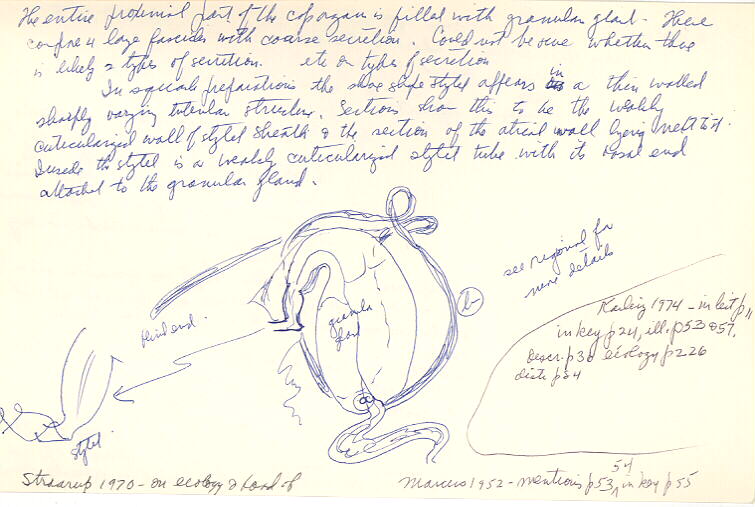 The entire proximal part of the cop organ is filled with granular gland. These
confine 4 large fascicles with coarse secretion. Could not be sure whether there
is likely 2 types of secretion. etc on types of secretion
In squash preparations the shoe shape stylet appears in a thin walled
sharply varying tubular structure. Sections show this to be the weakly
cuticularized wall of stylet sheath & the section of the atrial wall lying next to it.
Inside the stylet is a weakly cuticularized stylet tube with its basal end
attached to the granular gland.
see original for
more details
blind end.
granular
gland
stylet
Karling 1974 - in lit p 11
in key p 24, ill. p 53 & 57.
Descr. p 30 ecology p 226
distr p 54
Straarup 1970 - on ecology & food of
Marcus 1952 - mentions p 53, 54 in key p 55